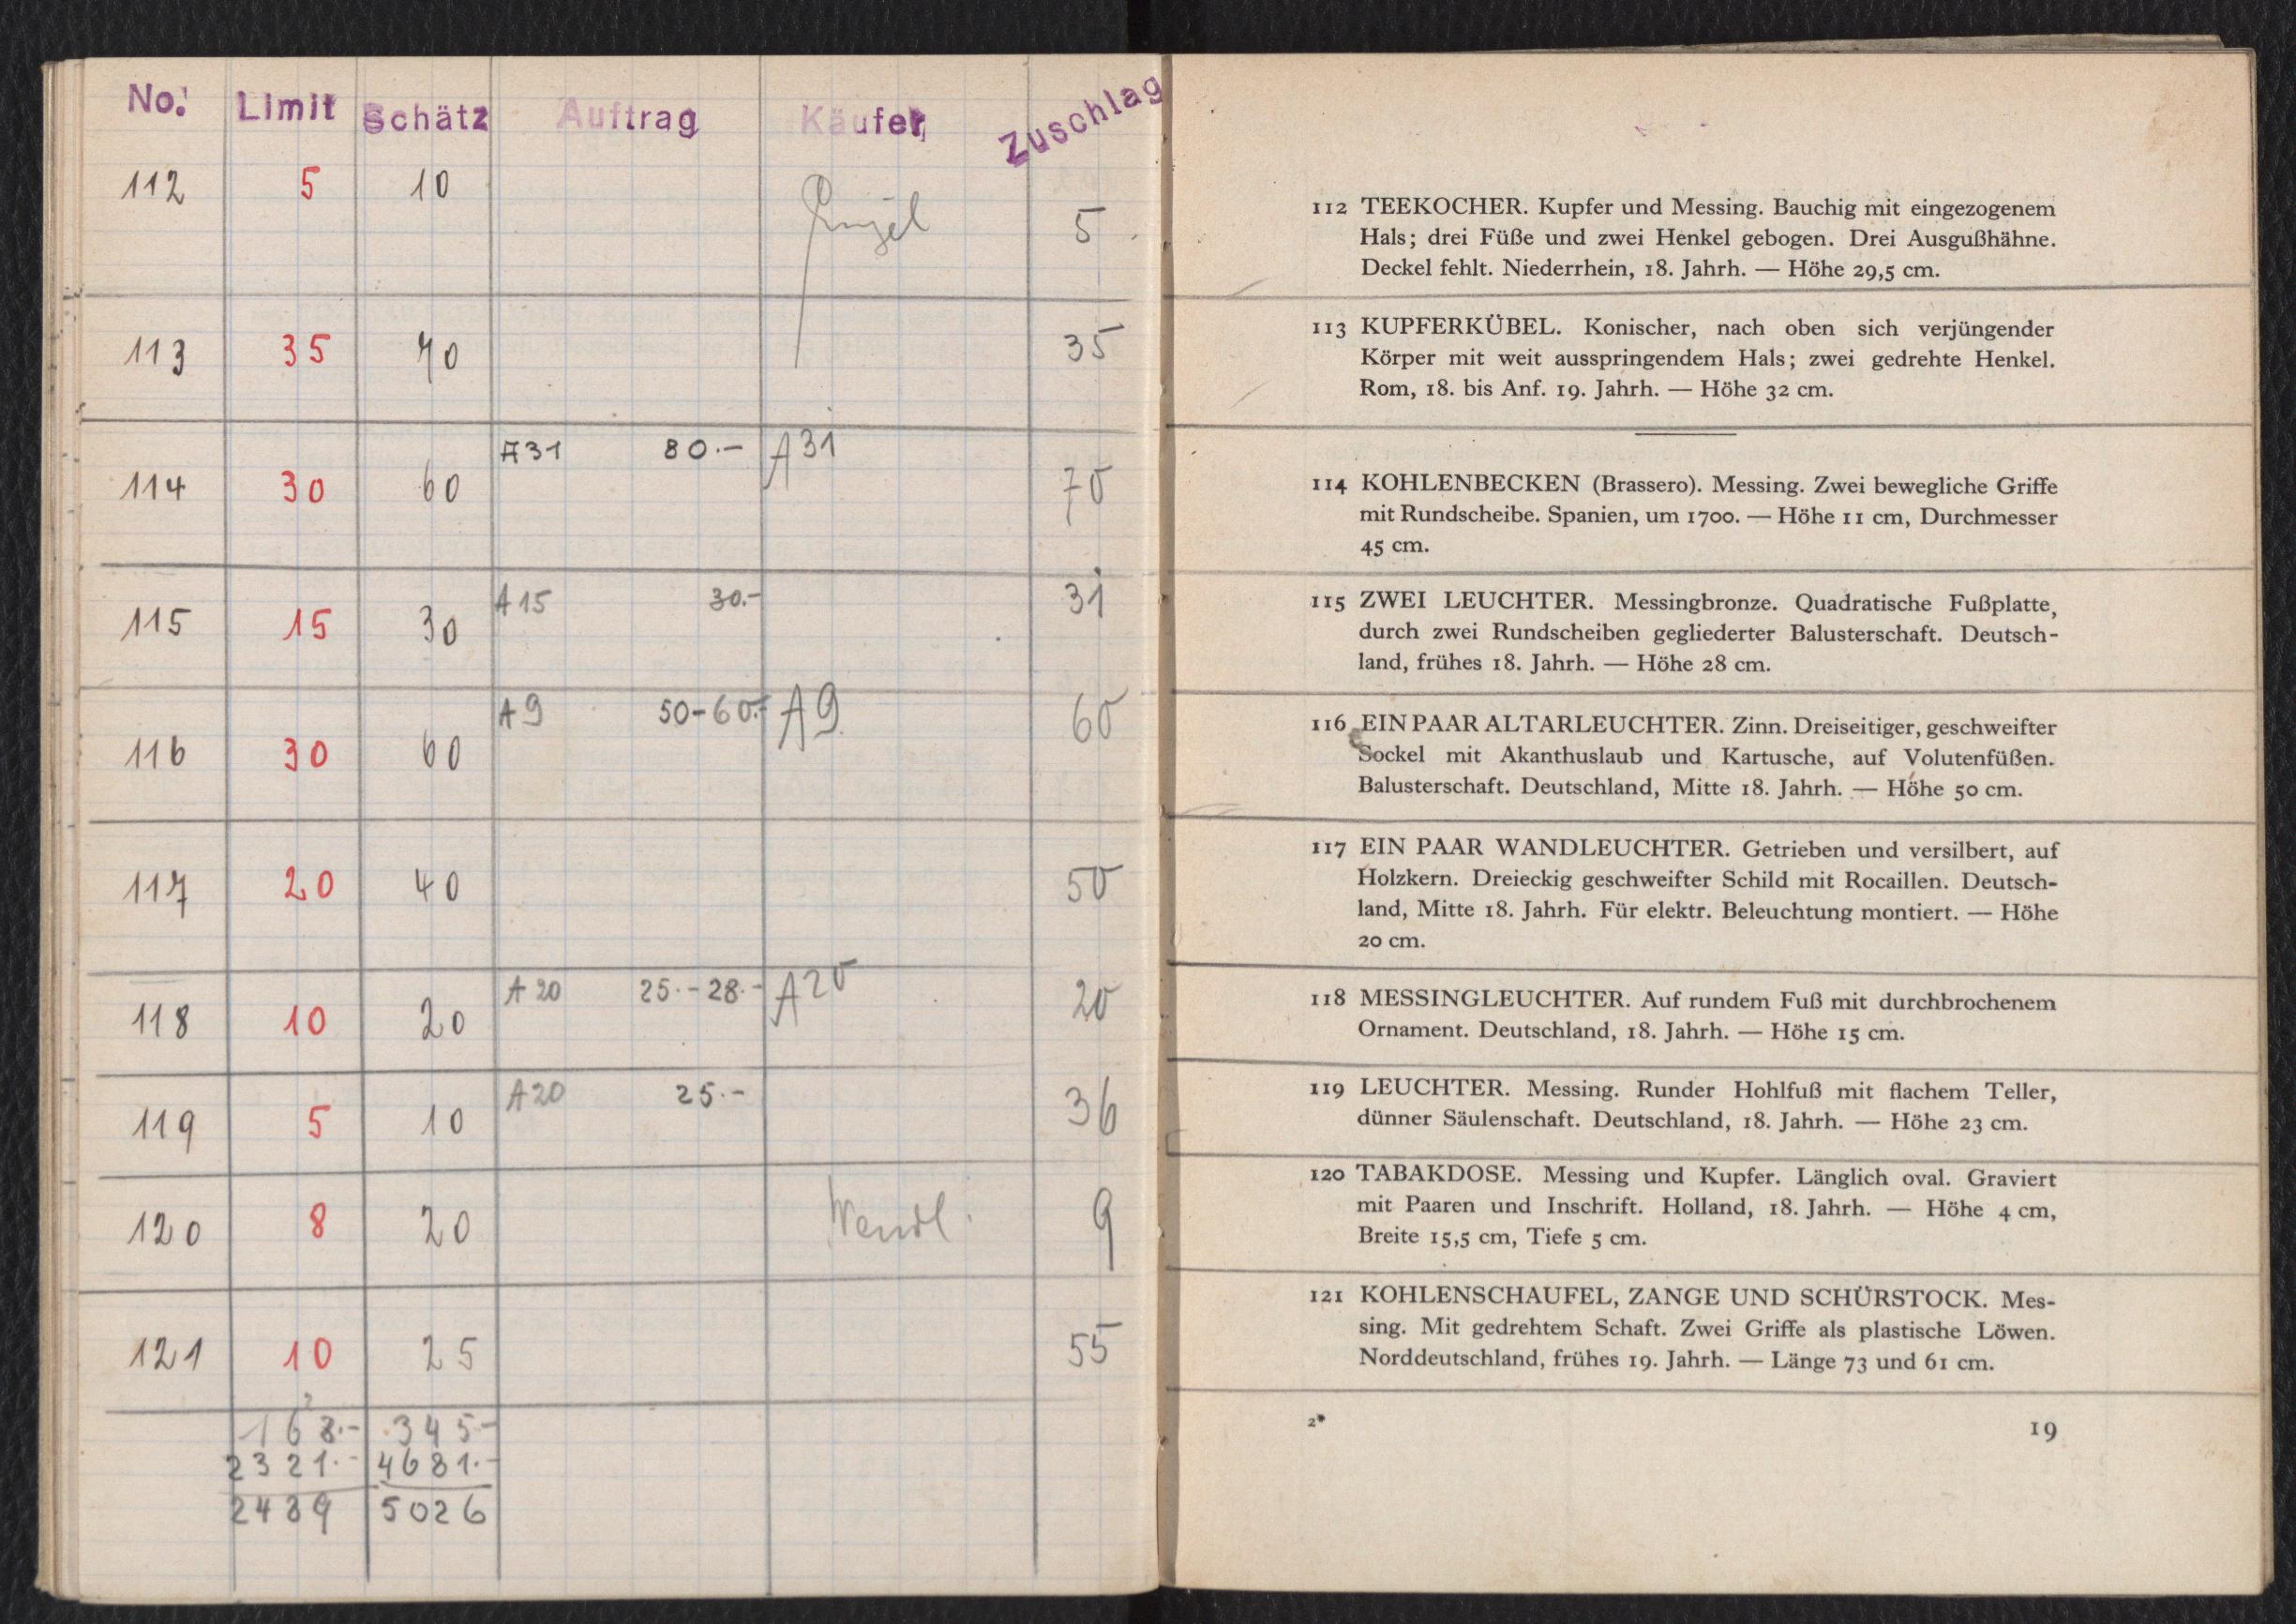 No. Limit Schätz Auftrag Käufer Zuschlag
112 5 10 5
113 35 70 35
114 30 60 A31 80.- A31 70
115 15 30 A15 30.- 31
116 30 60 A9 50-60.- A9 60
117 20 40 50
118 10 20 A20 25.-28.- A20 20
119 5 10 A20 25.- 36
120 8 20 Wendl. 9
121 10 25 55
168.- 345.-
2321.- 4681.-
2489 5026
112 TEEKOCHER. Kupfer und Messing. Bauchig mit eingezogenem
Hals; drei Füße und zwei Henkel gebogen. Drei Ausgußhähne.
Deckel fehlt. Niederrhein, 18. Jahrh. — Höhe 29,5 cm.
113 KUPFERKÜBEL. Konischer, nach oben sich verjüngender
Körper mit weit ausspringendem Hals; zwei gedrehte Henkel.
Rom, 18. bis Anf. 19. Jahrh. — Höhe 32 cm.
114 KOHLENBECKEN (Brassero). Messing. Zwei bewegliche Griffe
mit Rundscheibe. Spanien, um 1700. — Höhe 11 cm, Durchmesser
45 cm.
115 ZWEI LEUCHTER. Messingbronze. Quadratische Fußplatte,
durch zwei Rundscheiben gegliederter Balusterschaft. Deutsch-
land, frühes 18. Jahrh. — Höhe 28 cm.
116 EIN PAAR ALTARLEUCHTER. Zinn. Dreiseitiger, geschweifter
Sockel mit Akanthuslaub und Kartusche, auf Volutenfüßen.
Balusterschaft. Deutschland, Mitte 18. Jahrh. — Höhe 50 cm.
117 EIN PAAR WANDLEUCHTER. Getrieben und versilbert, auf
Holzkern. Dreieckig geschweifter Schild mit Rocaillen. Deutsch-
land, Mitte 18. Jahrh. Für elektr. Beleuchtung montiert. — Höhe
20 cm.
118 MESSINGLEUCHTER. Auf rundem Fuß mit durchbrochenem
Ornament. Deutschland, 18. Jahrh. — Höhe 15 cm.
119 LEUCHTER. Messing. Runder Hohlfuß mit flachem Teller,
dünner Säulenschaft. Deutschland, 18. Jahrh. — Höhe 23 cm.
120 TABAKDOSE. Messing und Kupfer. Länglich oval. Graviert
mit Paaren und Inschrift. Holland, 18. Jahrh. — Höhe 4 cm,
Breite 15,5 cm, Tiefe 5 cm.
121 KOHLENSCHAUFEL, ZANGE UND SCHÜRSTOCK. Mes-
sing. Mit gedrehtem Schaft. Zwei Griffe als plastische Löwen.
Norddeutschland, frühes 19. Jahrh. — Länge 73 und 61 cm.
2* 19